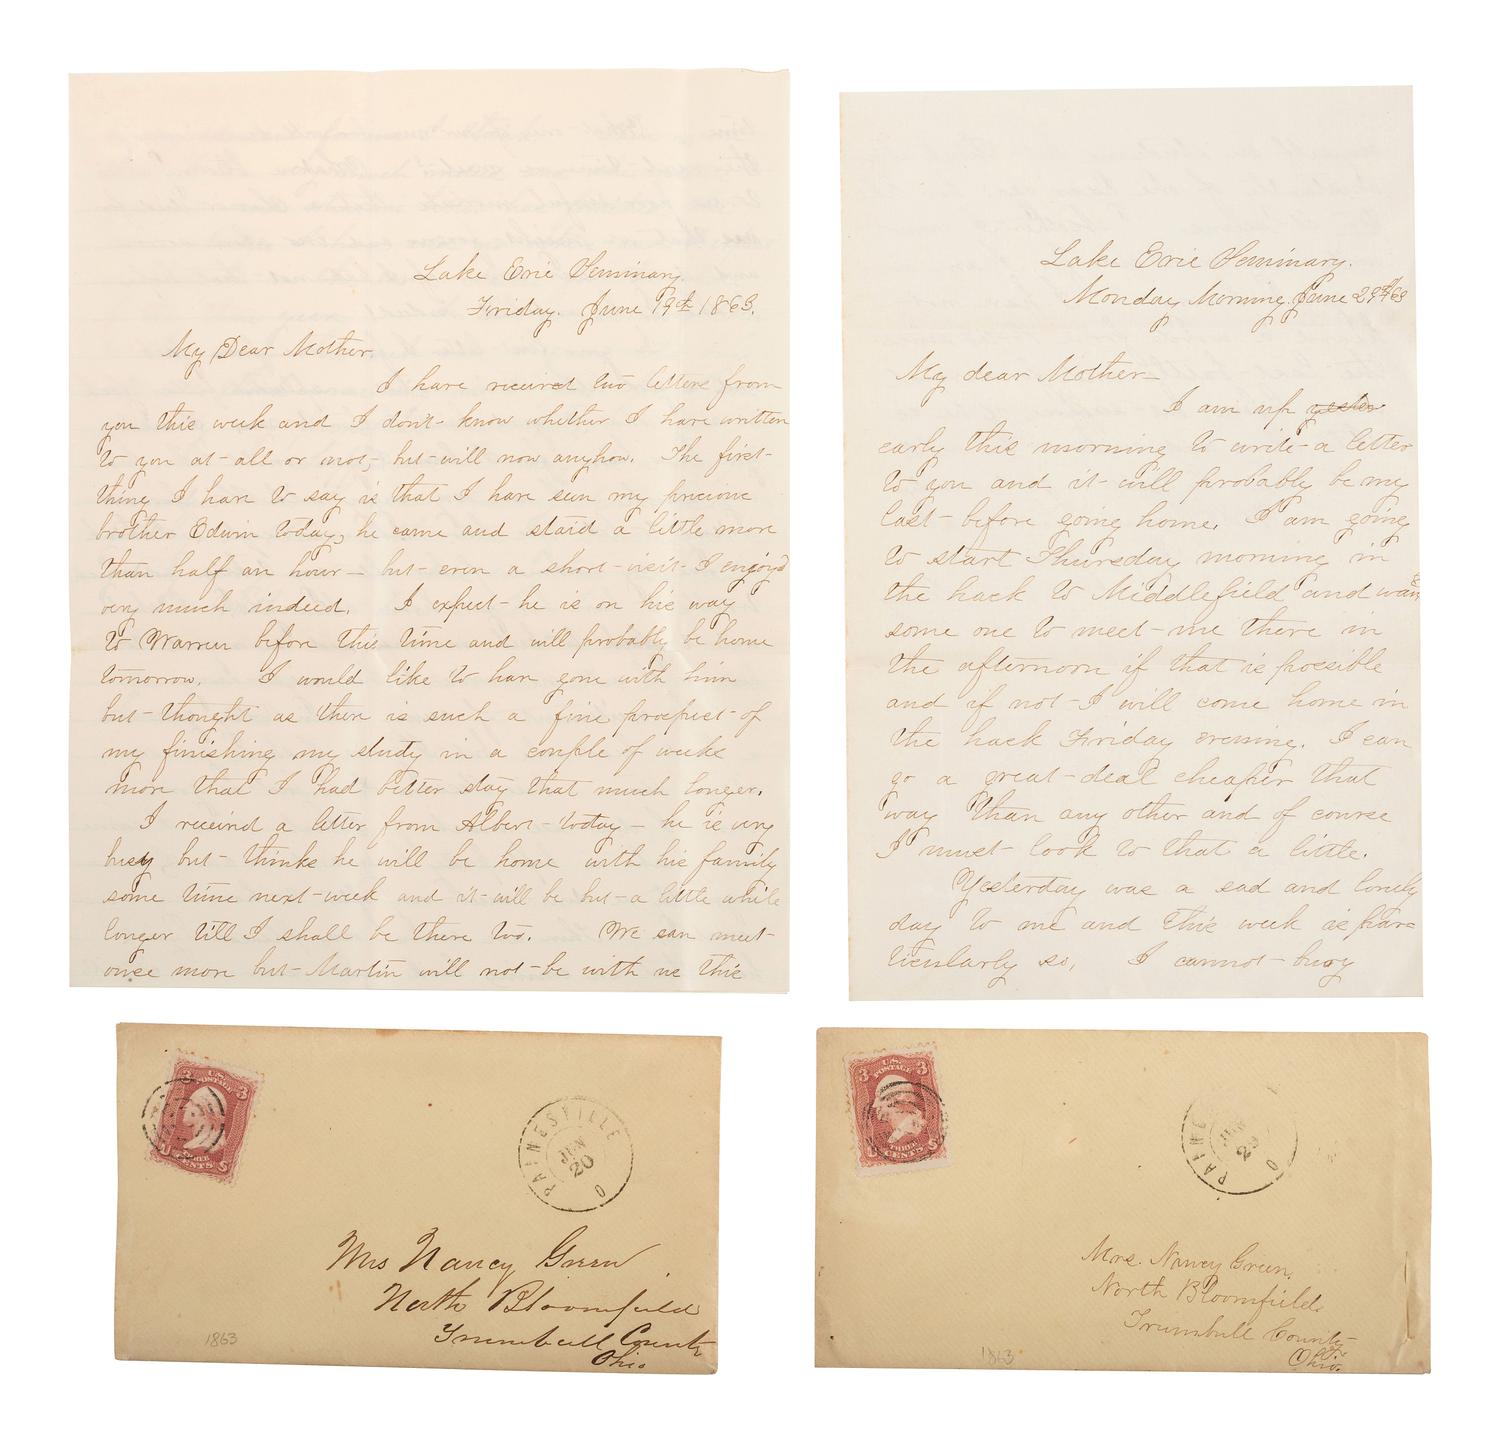 Lake Erie Seminary.
Friday. June 19th 1863.
My Dear Mother.
I have received two letters from
you this week and I don't know whether I have written
to you at all or not, but will now anyhow. The first
thing I have to say is that I have seen my precious
brother Edwin today, he came and staid a little more
than half an hour — but even a short visit I enjoy'd
very much indeed. I expect he is on his way
to Warren before this time and will probably be home
tomorrow. I would like to have gone with him
but thought as there is such a fine prospect of
my finishing my study in a couple of weeks
more that I had better stay that much longer.
I received a letter from Albert today — he is very
busy but thinks he will be home with his family
some time next week and it will be but a little while
longer till I shall be there too. We can meet
once more but Martin will not be with us this
Lake Erie Seminary.
Monday Morning. June 29th 63
My dear Mother —
I am up yester
early this morning to write a letter
to you and it will probably be my
last before going home. I am going
to start Thursday morning in
the hack to Middlefield and want
some one to meet me there in
the afternoon if that is possible
and if not I will come home in
the hack Friday evening. I can
go a great deal cheaper that
way than any other and of course
I must look to that a little.
Yesterday was a sad and lonely
day to me and this week is par=
ticularly so, I cannot bury
3 U.S. POSTAGE 3
THREE CENTS
PAINESVILLE O
JUN
20
Mrs Nancy Green
North Bloomfield
Trumbull County
Ohio
1863
3 U.S. POSTAGE 3
THREE CENTS
PAINE O
JUN
29
Mrs. Nancy Green,
North Bloomfield
Trumbull County
Ohio.
1863